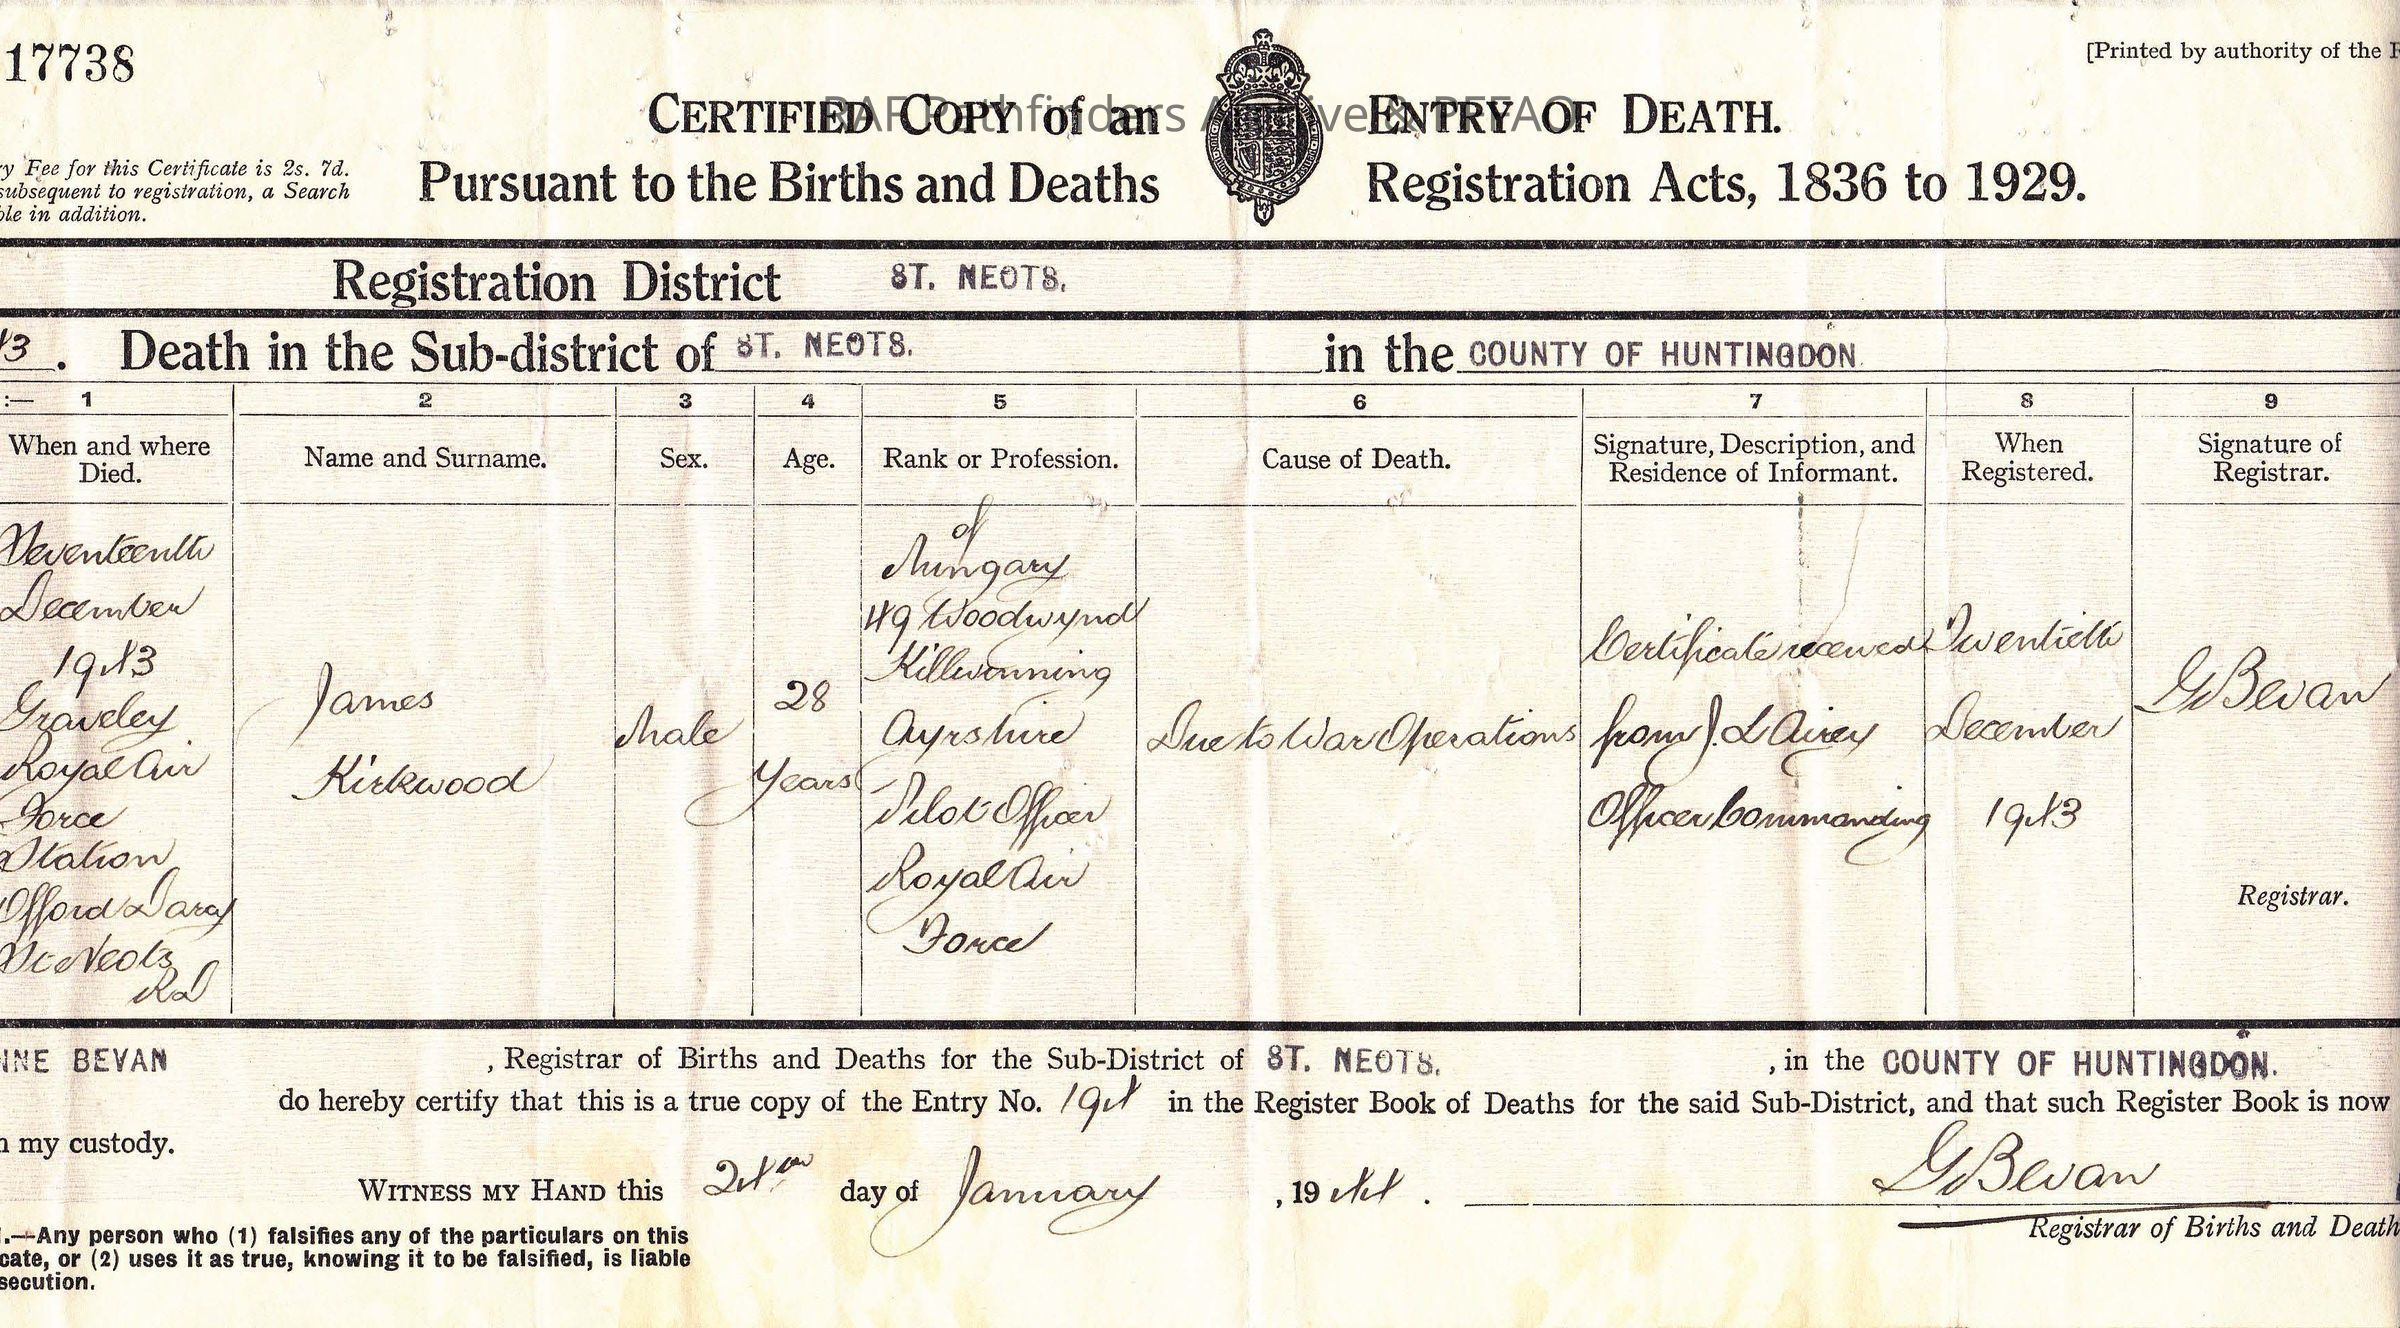 17738
[Printed by authority of the
RAF Pathfinders Archive & PFFAO
CERTIFIED COPY of an ENTRY OF DEATH.
Pursuant to the Births and Deaths Registration Acts, 1836 to 1929.
ry Fee for this Certificate is 2s. 7d.
subsequent to registration, a Search
ble in addition.
Registration District ST. NEOTS.
43. Death in the Sub-district of ST. NEOTS. in the COUNTY OF HUNTINGDON
:— 1 2 3 4 5 6 7 8 9
When and where
Died.
Name and Surname.
Sex.
Age.
Rank or Profession.
Cause of Death.
Signature, Description, and
Residence of Informant.
When
Registered.
Signature of
Registrar.
Seventeenth
December
1943
Graveley
Royal Air
Force
Station
Offord Darcy
St Neots
RD
James
Kirkwood
Male
28
Years
of
49 Woodwynd
Killwinning
Ayrshire
Pilot Officer
Royal Air
Force
Due to War Operations
Certificate received
from J. L Airey
Officer Commanding
Twentieth
December
1943
G Bevan
Registrar.
NNE BEVAN , Registrar of Births and Deaths for the Sub-District of ST. NEOTS. , in the COUNTY OF HUNTINGDON.
do hereby certify that this is a true copy of the Entry No. 194 in the Register Book of Deaths for the said Sub-District, and that such Register Book is now
n my custody.
WITNESS MY HAND this 24th day of January , 19 44 . G Bevan
Registrar of Births and Death
.—Any person who (1) falsifies any of the particulars on this
cate, or (2) uses it as true, knowing it to be falsified, is liable
secution.